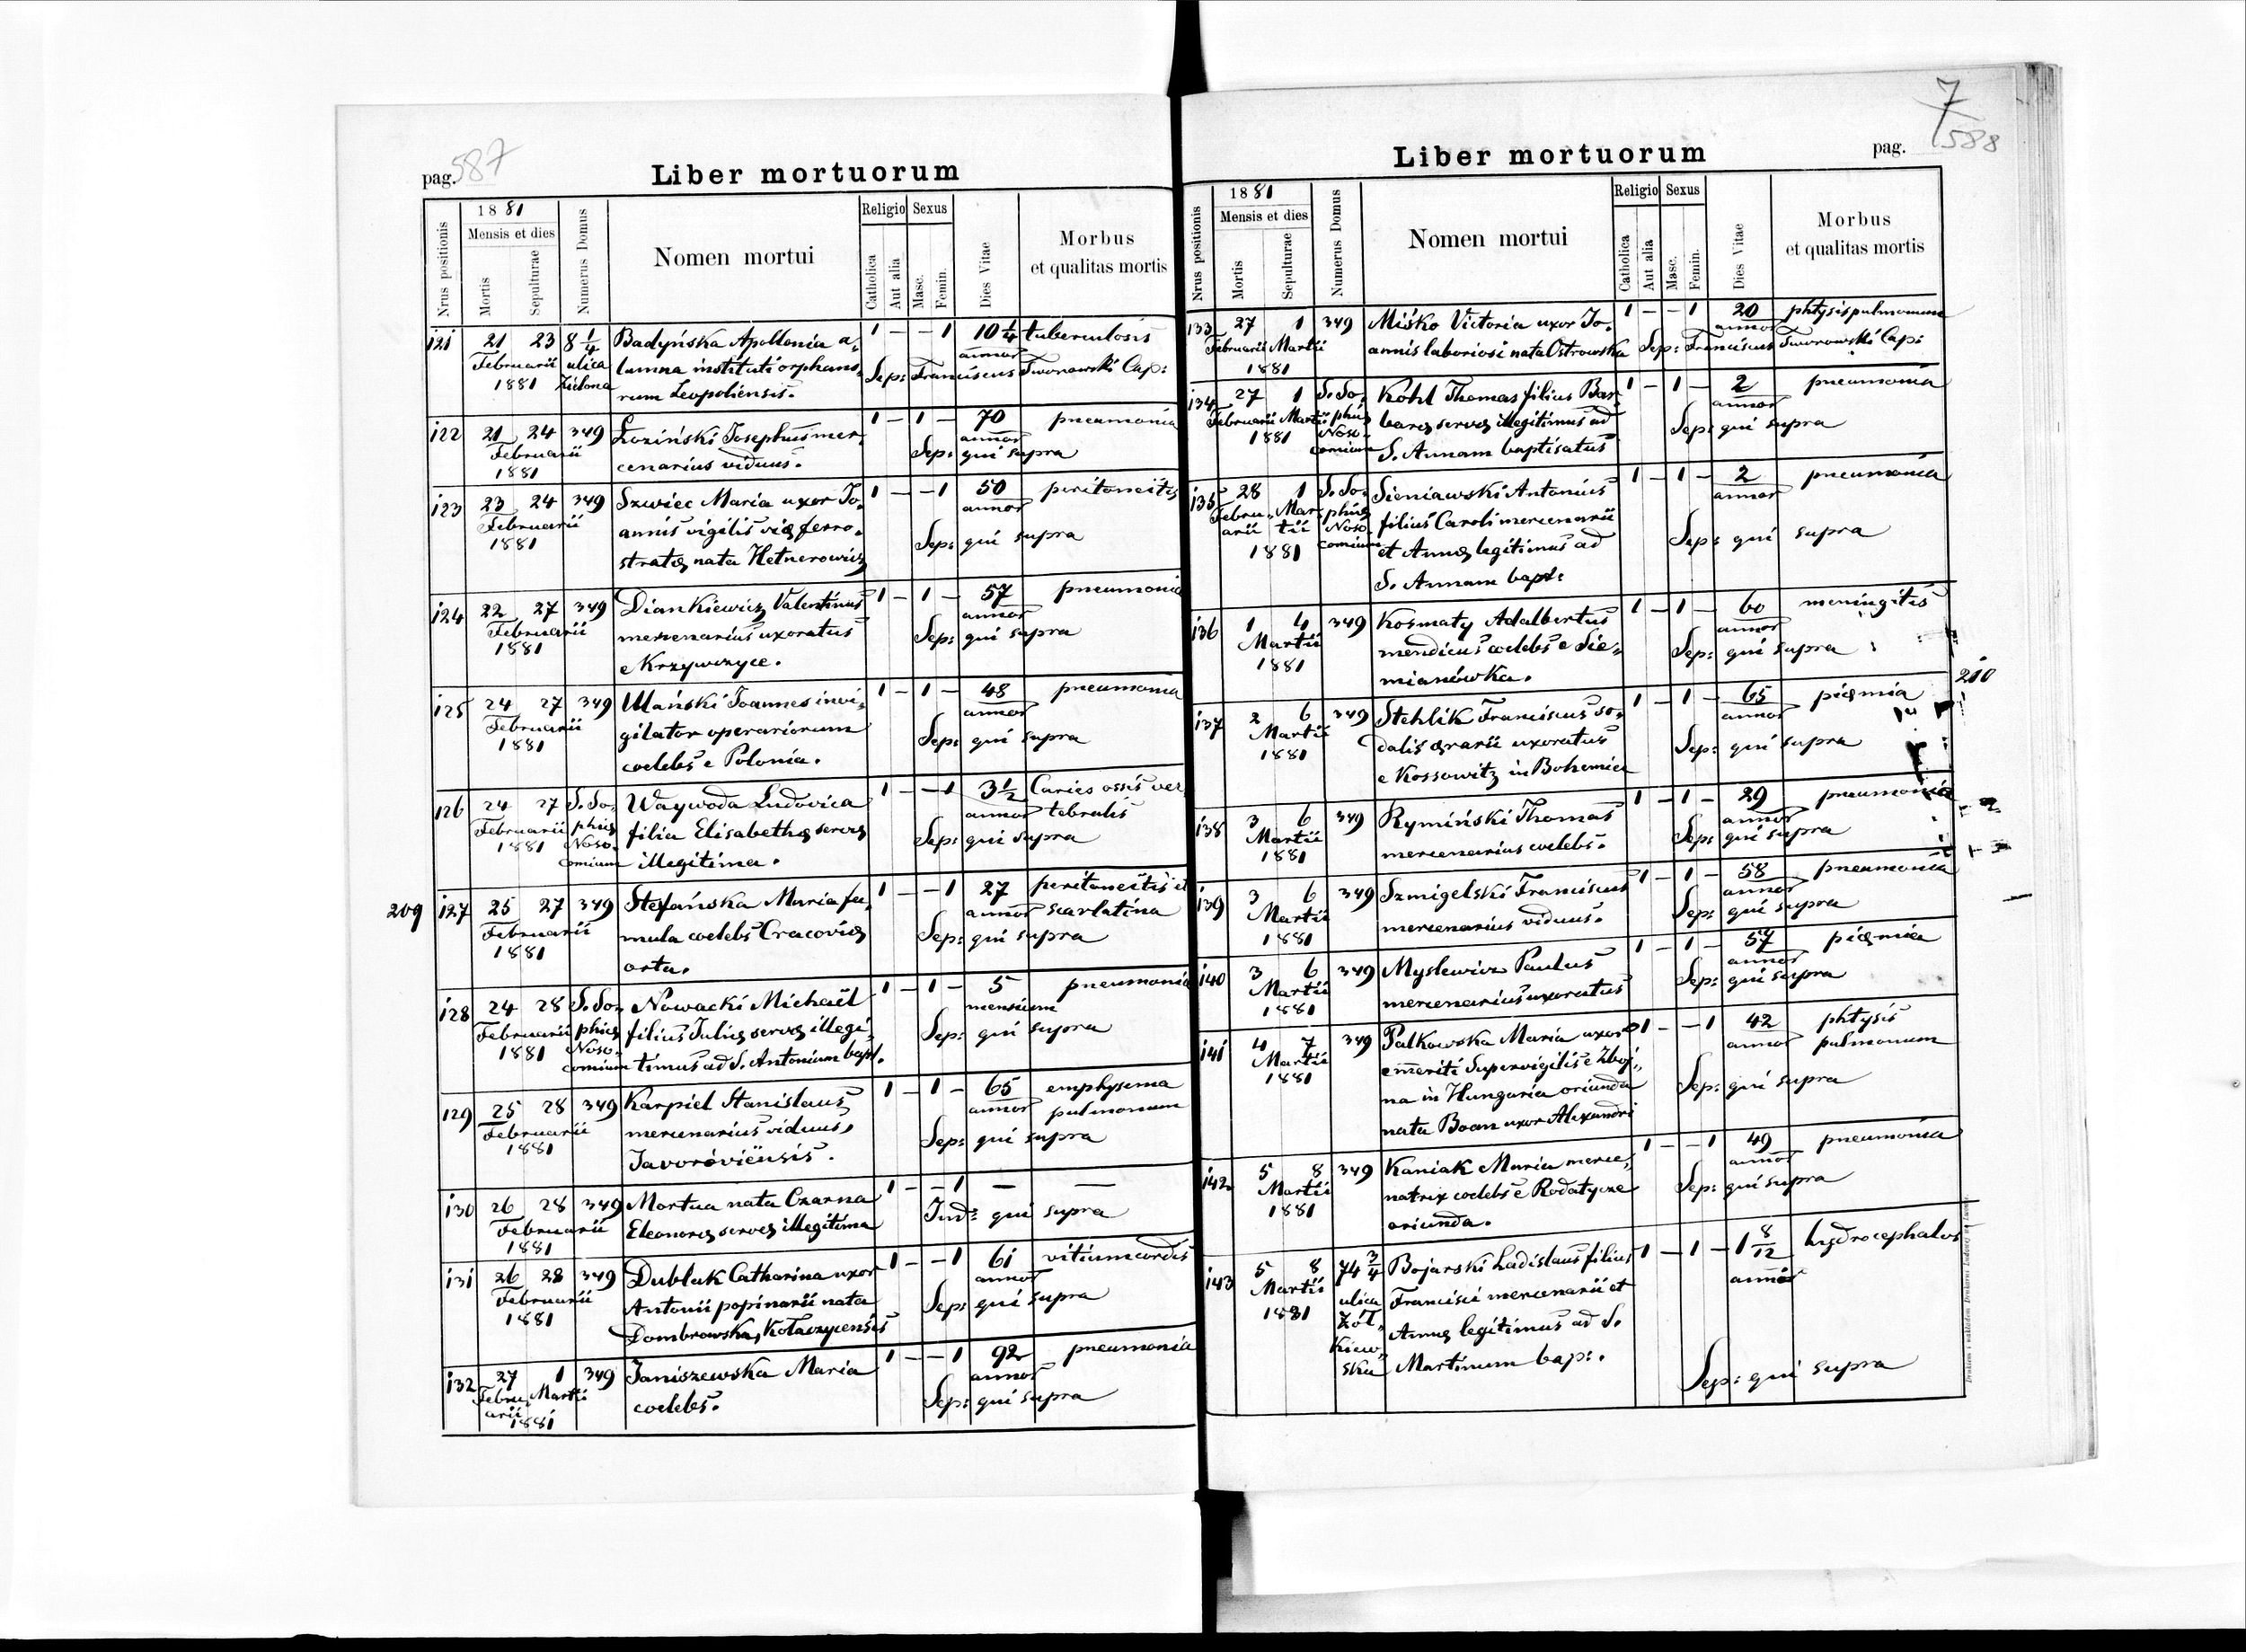 pag. 587
Liber mortuorum
Nrus positionis
1881
Mensis et dies
Mortis
Sepulturae
Numerus Domus
Nomen mortui
Religio
Catholica
Aut alia
Sexus
Masc.
Femin.
Dies Vitae
Morbus
et qualitas mortis
121 21 23 8 1/4 Badyńska Apollonia a, 1 – – 1 10 1/4 tuberculosis
Februarii ulica lumna instituti orphano, annor
1881 Zielona rum Leopoliensis. Sep: Franciscus Tworowski Cap:
122 21 24 349 Łoziński Josephus mer, 1 – 1 – 70 pneumonia
Februarii cenarius viduus. annor
1881 Sep: qui supra
123 23 24 349 Szwiec Maria uxor Jo, 1 – – 1 50 peritoneitis
Februarii annis vigilis viæ ferro, annor
1881 stratæ nata Hetnerowicz Sep: qui supra
124 22 27 349 Diankiewicz Valentinus 1 – 1 – 57 pneumonia
Februarii mercenarius uxoratus annor
1881 e Krzywczyce. Sep: qui supra
125 24 27 349 Ulański Joannes invi, 1 – 1 – 48 pneumonia
Februarii gilator operariorum annor
1881 coelebs e Polonia. Sep: qui supra
126 24 27 S. So, Waywoda Ludovica 1 – – 1 3 1/2 Caries ossis ver,
Februarii phiæ filia Elisabethæ servæ annor tebralis
1881 Noso, illegitima. Sep: qui supra
comium
209 127 25 27 349 Stefańska Maria fa, 1 – – 1 27 peritoneitis et
Februarii mula coelebs Cracoviæ annor scarlatina
1881 orta. Sep: qui supra
128 24 28 S. So, Nowacki Michaël 1 – 1 – 5 pneumonia
Februarii phiæ filius Juliæ servæ illegi, mensium
1881 Noso, timus ad S. Antonium bapt. Sep: qui supra
comium
129 25 28 349 Karpiel Stanislaus, 1 – 1 – 65 emphysema
Februarii mercenarius viduus, annor pulmonum
1881 Javoroviensis. Sep: qui supra
130 26 28 349 Mortua nata Czarna 1 – – 1 — —
Februarii Eleonoræ servæ illegitima Ind: qui supra
1881
131 26 28 349 Dubluk Catharina uxor 1 – – 1 61 vitium cordis
Februarii Antonii popinarii nata annor
1881 Dombrowska, Kołaczycensis Sep: qui supra
132 27 1 349 Janiszewska Maria 1 – – 1 92 pneumonia
Febru, Martii coelebs. annor
arii Sep: qui supra
1881
7
pag. 588
Liber mortuorum
Nrus positionis
1881
Mensis et dies
Mortis
Sepulturae
Numerus Domus
Nomen mortui
Religio
Catholica
Aut alia
Sexus
Masc.
Femin.
Dies Vitae
Morbus
et qualitas mortis
133 27 1 349 Miśko Victoria uxor Jo, 1 – – 1 20 phtysis pulmonum
Februarii Martii annis laboriosi nata Ostrowska annor
1881 Sep: Franciscus Tworowski Cap:
134 27 1 S. So, Kohl Thomas filius Bar, 1 – 1 – 2 pneumonia
Februarii Martii phiæ baræ servæ illegitimus ad annor
1881 Noso, S. Annam baptisatus Sep: qui supra
comium
135 28 1 S. So, Sieniawski Antonius 1 – 1 – 2 pneumonia
Febru, Mar, phiæ filius Caroli mercenarii annor
arii tii Noso, et Annæ legitimus ad Sep: qui supra
1881 comium S. Annam bapt:
136 1 4 349 Kosmaty Adalbertus 1 – 1 – 60 meningitis
Martii mendicus coelebs e Sie, annor
1881 mianówka. Sep: qui supra
210
137 2 6 349 Stehlik Franciscus so, 1 – 1 – 65 piæmia
Martii dalis ærarii uxoratus annor
1881 e Kossowitz in Bohemia Sep: qui supra
138 3 6 349 Rymiński Thomas 1 – 1 – 29 pneumonia
Martii mercenarius coelebs. annor
1881 Sep: qui supra
139 3 6 349 Szmigelski Franciscus 1 – 1 – 58 pneumonia
Martii mercenarius viduus. annor
1881 Sep: qui supra
140 3 6 349 Myslewicz Paulus 1 – 1 – 57 piæmia
Martii mercenarius uxoratus annor
1881 Sep: qui supra
141 4 7 349 Palkowska Maria uxor 1 – – 1 42 phtysis
Martii emeriti Supervigilis e Zboj, annor pulmonum
1881 na in Hungaria oriunda Sep: qui supra
nata Boan uxor Alexandri
142 5 8 349 Kaniak Maria merce, 1 – – 1 49 pneumonia
Martii natrix coelebs e Rodatycze annor
1881 oriunda. Sep: qui supra
143 5 8 74 3/4 Bojarski Ladislaus filius 1 – 1 – 1 8/12 hydrocephalos
Martii ulica Francisci mercenarii et annor
1881 Żół, Annæ legitimus ad S.
kiew, Martinum bap:.
ska Sep: qui supra